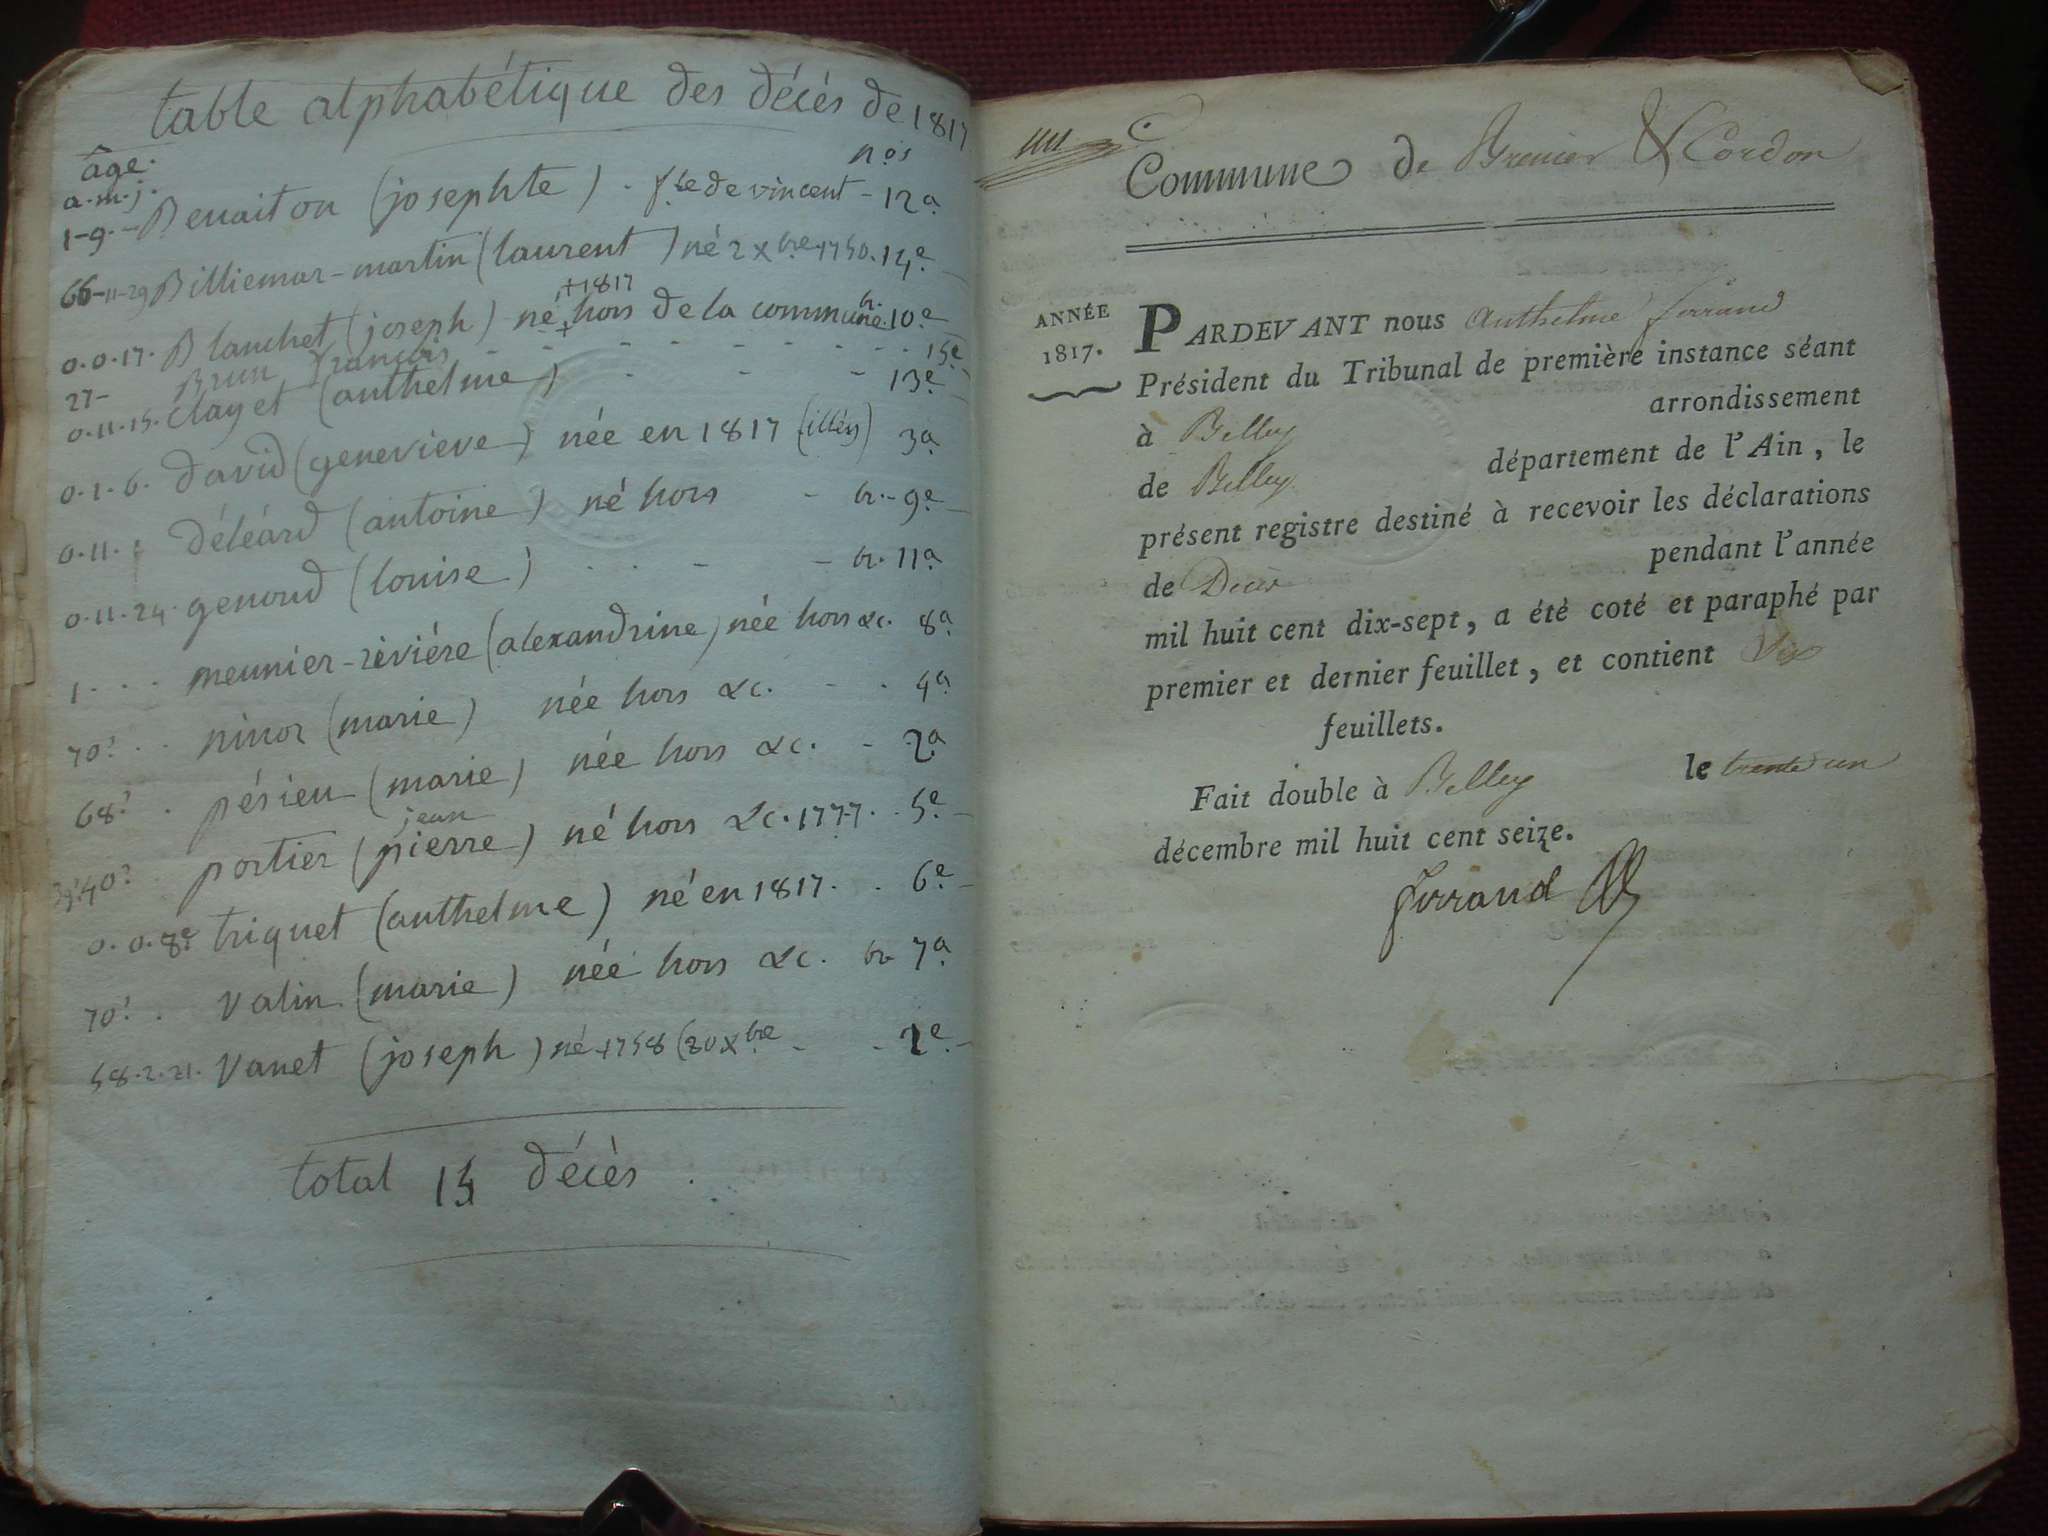 table alphabétique des décés de 1817
âge. nos
a. m. j.
1-9.- Benaiton (josephte). fle de vincent - 12a
66-11-29 Billiemar-martin (laurent) né 2 xbre 1750. 14e
+1817
0.0.17. Blanchet (joseph) né hors de la commune br. 10e
27- Brun françois - - - - 15e
0.11.15. Clayet (anthelme) - - - 13e
0.1.6. david (geneviève) née en 1817 3a
0.11. déléard (antoine) né hors - br. - 9e
0.11.24. genoud (louise) - - - br. 11a
1 . . . meunier-rivière (alexandrine) née hors &c. 8a
70? . . ninor (marie) née hors &c. - . 4a
68? . pésieu (marie) née hors &c. - 2a
jean
40? . portier (pierre) né hors &c. 1777. . 5e
0.0.8e triquet (anthelme) né en 1817. . 6e
70? . valin (marie) née hors &c. br 7a
58.2.21. vanet (joseph) né 1758 (20 xbre - - 1e
total 15 décès.
Commune de Brenier & Cordon
ANNÉE
1817.
PARDEVANT nous Anthelme ferrand
Président du Tribunal de première instance séant
à Belley arrondissement
de Belley département de l'Ain, le
présent registre destiné à recevoir les déclarations
de Décès pendant l'année
mil huit cent dix-sept, a été coté et paraphé par
premier et dernier feuillet, et contient
feuillets.
Fait double à Belley le trente un
décembre mil huit cent seize.
ferrand